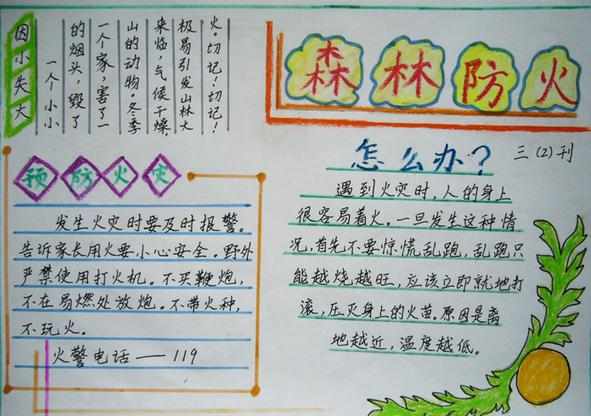 森林防火
因小失大
一个小小
的烟头，毁了
一个家，害了一
山的动物。冬季
来临，气候干燥
极易引发山林大
火。切记！切记！
预防火灾
发生火灾时要及时报警。
告诉家长用火要小心安全。野外
严禁使用打火机。不买鞭炮，
不在易燃处放炮。不带火种，
不玩火。
火警电话——119
怎么办？
三(2)刊
遇到火灾时，人的身上
很容易着火。一旦发生这种情
况，首先不要惊慌乱跑，乱跑只
能越烧越旺，应该立即就地打
滚，压灭身上的火苗。原因是离
地越近，温度越低。